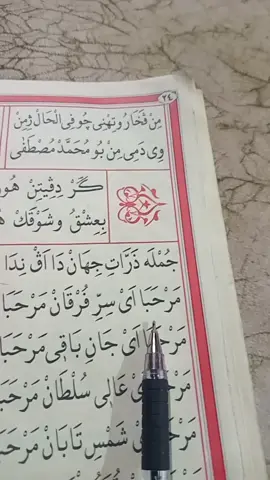 ٢٤
مِنْ فَخَارُ وتِهْنِى چُو فِى الْحَالْ ژِمِنْ
وِى دَمِى مِنْ بُو مُحَمَّدْ مُصْطَفٰى
گَرْ دِڤِيتِنْ
بِعِشْقُ وشَوْقَكْ
جُمْلَه ذَرَّاتِ جِهَانْ دَا اَڤْ نِدَا
مَرْحَبَا اَىْ سِرِّ فُرْقَانْ مَرْحَبَا
مَرْحَبَا اَىْ جَانِ بَاقِى مَرْحَبَا
عَالِى سُلْطَانْ مَرْحَبَا
شَمْسِ تَابَانْ مَرْحَبَا